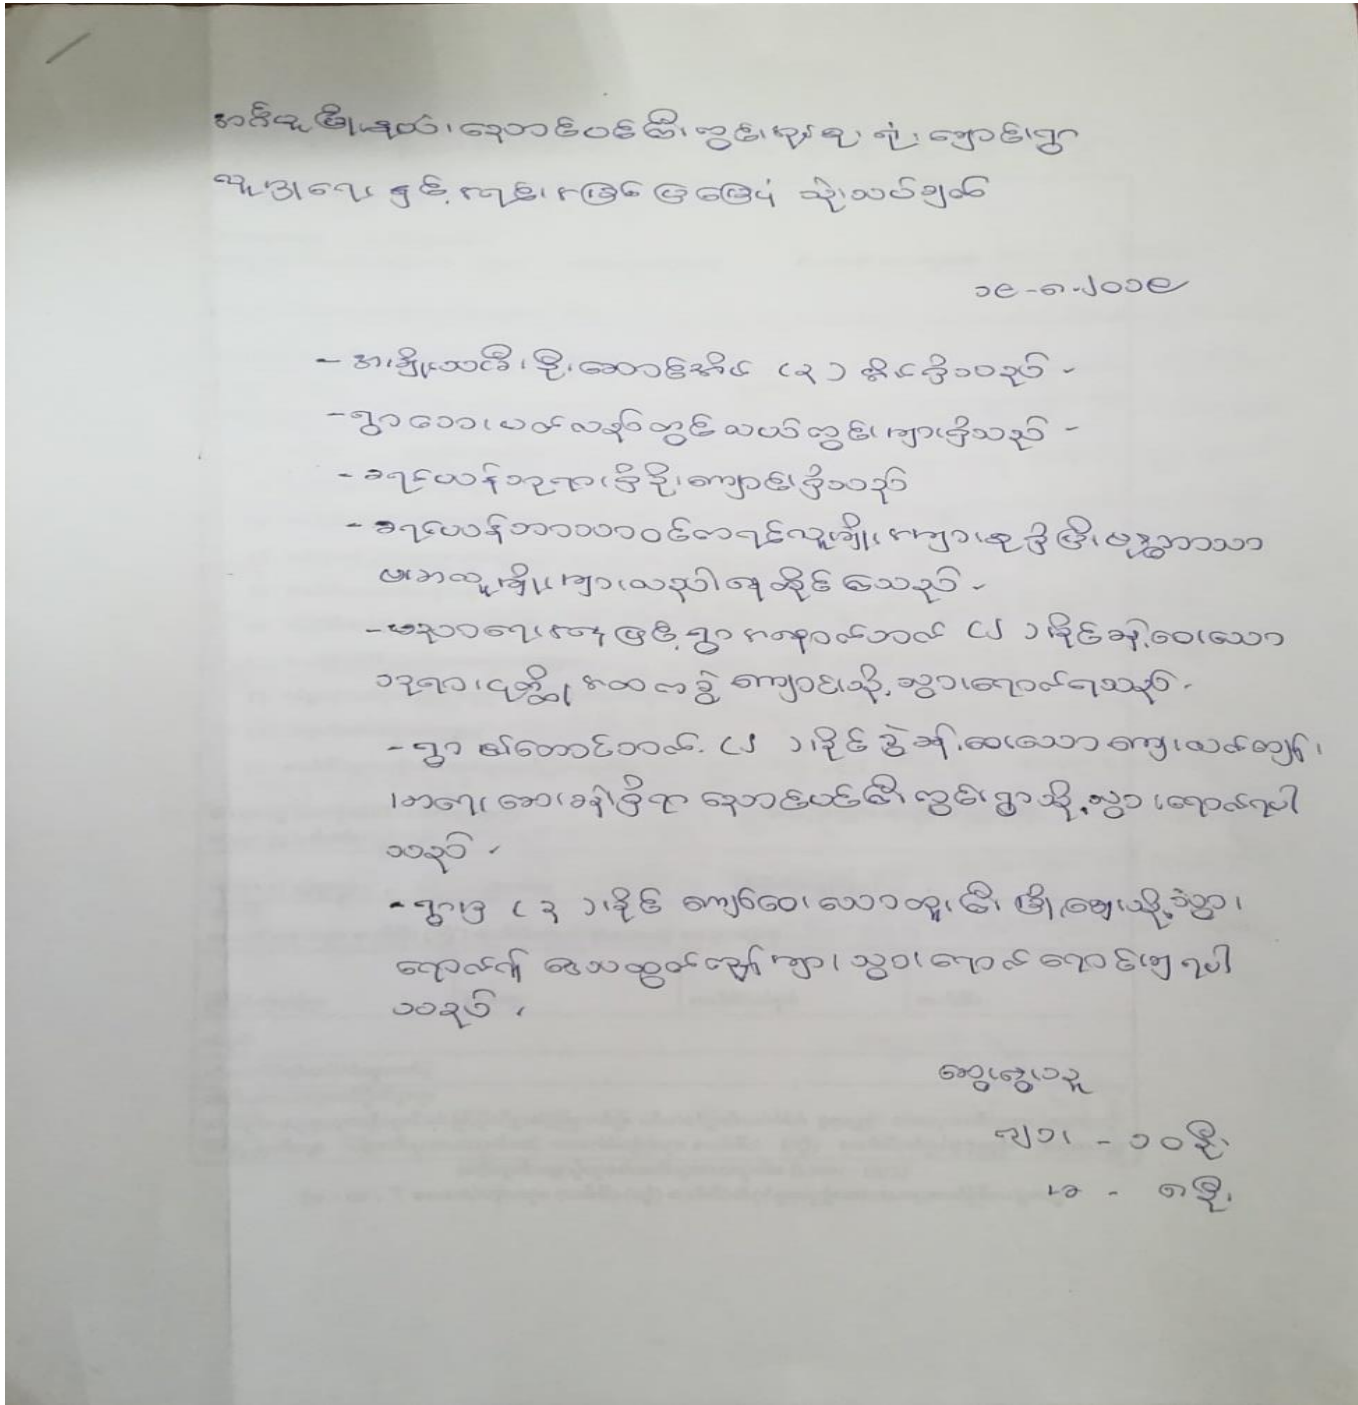 အင်္ဂပူမြို့နယ်၊ ညောင်ပင်ကြီးကွင်းအုပ်စု၊ ရုံးချောင်းရွာ
လူမှုရေးနှင့် ကျန်းမာရေး ဖြေပုံ သုံးသပ်ချက်
၁၉-၈-၂၀၁၉
- အားချို့သင်္ခမ်းစိုးဆောင်အိမ် (၃) အိမ်ရှိသည်။
- ရွာဘေးပတ်လည်တွင် လယ်ကွင်းများရှိသည်
- ခရစ်ယာန်ဘုရားရှိခိုးကျောင်းရှိသည်
- ခရစ်ယာန်ဘာသာဝင်ကရင်လူမျိုး အများစုရှိပြီး ဗုဒ္ဓဘာသာ
ဗမာလူမျိုးများလည်း နေထိုင်သည်။
- ပညာရေးအနေဖြင့် ရွာအနောက်ဘက် (၂) မိုင်ခန့်ဝေးသော
ဘုရားငုတ္တို အထကခွဲကျောင်းသို့ သွားရောက်ရသည်။
- ရွာ၏တောင်ဘက် (၂) မိုင်ခွဲခန့်ဝေးသော ကျေးလက်ကျန်း
မာရေးဆေးခန်းရှိရာ ညောင်ပင်ကြီးကွင်းရွာသို့ သွားရောက်ရပါ
သည်။
- ရွာမှ (၃) မိုင် ကျော်ဝေးသော ထူးကြီးမြို့ဈေးသို့ သွား
ရောက်၍ ဒေသထွက်ကုန်များ သွားရောက်ရောင်းချရပါ
သည်။
ဆွေးနွေးသူ
ကျား - ၁၀ ဦး
မ - ၈ ဦး